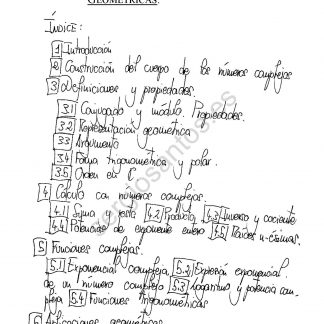 GEOMÉTRICAS.
ÍNDICE:
1 Introducción
2 Construcción del cuerpo de los números complejos
3 Definiciones y propiedades.
3.1 Conjugado y módulo. Propiedades.
3.2 Representación geométrica
3.3 Argumento
3.4 Forma trigonométrica y polar.
3.5 Orden en ℂ.
4 Cálculo con números complejos.
4.1 Suma y resta 4.2 Producto 4.3 Inverso y cociente
4.4 Potencias de exponente entero 4.5 Raíces n-ésimas.
5 Funciones complejas.
5.1 Exponencial compleja 5.2 Expresión exponencial
de un número complejo 5.3 Logaritmo y potencia com-
pleja 5.4 Funciones trigonométricas
6 Aplicaciones geométricas